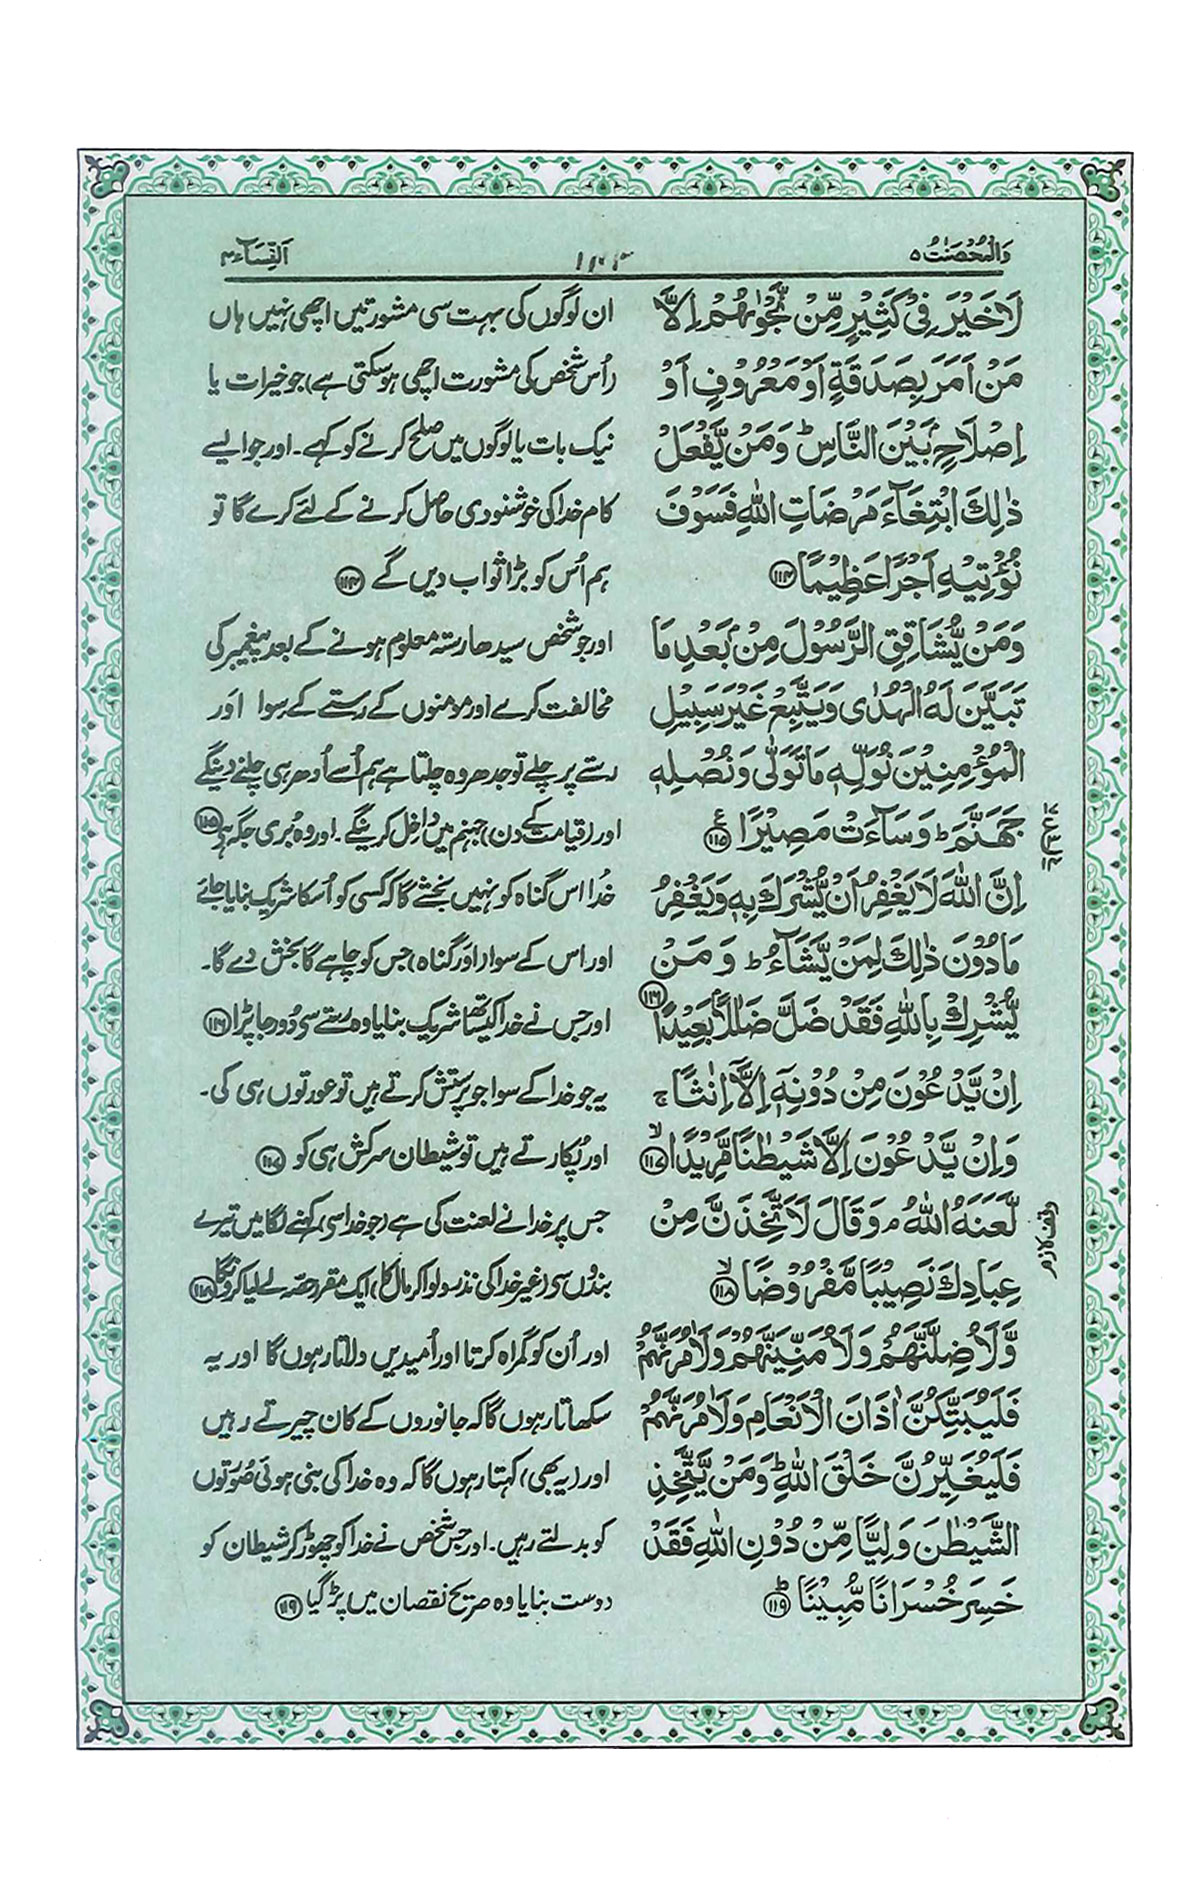 والمحصنٰت ۵
۱۴۳
النساء ۴
لَا خَيْرَ فِيْ كَثِيْرٍ مِّنْ نَّجْوٰىهُمْ اِلَّا
مَنْ اَمَرَ بِصَدَقَةٍ اَوْ مَعْرُوْفٍ اَوْ
اِصْلَاحٍۭ بَيْنَ النَّاسِ ؕ وَمَنْ يَّفْعَلْ
ذٰلِكَ ابْتِغَآءَ مَرْضَاتِ اللّٰهِ فَسَوْفَ
نُؤْتِيْهِ اَجْرًا عَظِيْمًا ۝۱۱۴
وَمَنْ يُّشَاقِقِ الرَّسُوْلَ مِنْۢ بَعْدِ مَا
تَبَيَّنَ لَهُ الْهُدٰى وَيَتَّبِعْ غَيْرَ سَبِيْلِ
الْمُؤْمِنِيْنَ نُوَلِّهٖ مَا تَوَلّٰى وَنُصْلِهٖ
جَهَنَّمَ ؕ وَسَآءَتْ مَصِيْرًا ۝۱۱۵ ع
اِنَّ اللّٰهَ لَا يَغْفِرُ اَنْ يُّشْرَكَ بِهٖ وَيَغْفِرُ
مَا دُوْنَ ذٰلِكَ لِمَنْ يَّشَآءُ ؕ وَمَنْ
يُّشْرِكْ بِاللّٰهِ فَقَدْ ضَلَّ ضَلٰلًاۢ بَعِيْدًا ۝۱۱۶
اِنْ يَّدْعُوْنَ مِنْ دُوْنِهٖٓ اِلَّآ اِنٰثًا ۚ
وَاِنْ يَّدْعُوْنَ اِلَّا شَيْطٰنًا مَّرِيْدًا ۝۱۱۷ۙ
لَّعَنَهُ اللّٰهُ ۘ وَقَالَ لَاَتَّخِذَنَّ مِنْ
عِبَادِكَ نَصِيْبًا مَّفْرُوْضًا ۝۱۱۸ۙ
وَّلَاُضِلَّنَّهُمْ وَلَاُمَنِّيَنَّهُمْ وَلَاٰمُرَنَّهُمْ
فَلَيُبَتِّكُنَّ اٰذَانَ الْاَنْعَامِ وَلَاٰمُرَنَّهُمْ
فَلَيُغَيِّرُنَّ خَلْقَ اللّٰهِ ؕ وَمَنْ يَّتَّخِذِ
الشَّيْطٰنَ وَلِيًّا مِّنْ دُوْنِ اللّٰهِ فَقَدْ
خَسِرَ خُسْرَانًا مُّبِيْنًا ؕ ۝۱۱۹
ان لوگوں کی بہت سی مشورتیں اچھی نہیں ہاں
(اُس شخص کی مشورت اچھی ہو سکتی ہے) جو خیرات یا
نیک بات یا لوگوں میں صلح کرنے کو کہے۔ اور جو ایسے
کام خدا کی خوشنودی حاصل کرنے کے لئے کرے گا تو
ہم اُس کو بڑا ثواب دیں گے ۝۱۱۴
اور جو شخص سیدھا رستہ معلوم ہونے کے بعد پیغمبر کی
مخالفت کرے اور مومنوں کے رستے کے سوا اَور
رستے پر چلے تو جدھر وہ چلتا ہے ہم اُسے اُدھر ہی چلنے دینگے
اور (قیامت کے دن) جہنم میں داخل کرینگے۔ اور وہ بُری جگہ ہی ۝۱۱۵
خُدا اس گناہ کو نہیں بخشے گا کہ کسی کو اُسکا شریک بنایا جائے
اور اس کے سوا (اَور گناہ) جس کو چاہے گا بخش دے گا۔
اور جس نے خدا کیساتھ شریک بنایا وہ رستے سی دُور جا پڑا ۝۱۱۶
یہ جو خدا کے سوا جو پرستش کرتے ہیں تو عورتوں ہی کی۔
اور پُکارتے ہیں تو شیطان سرکش ہی کو ۝۱۱۷
جس پر خدا نے لعنت کی ہے (جو خدا سی) کہنے لگا میں تیرے
بندُوں سی (غیر خدا کی نذر سولوا کر مال کا) ایک مقرر حصّہ لے لیا کرونگا ۝۱۱۸
اور اُن کو گمراہ کرتا اور اُمیدیں دلاتا رہوں گا اور یہ
سکھاتا رہوں گا کہ جانوروں کے کان چیرتے رہیں
اور (یہ بھی) کہتا رہوں گا کہ وہ خدا کی بنی ہوئی صُورتوں
کو بدلتے رہیں۔ اور جس شخص نے خدا کو چھوڑ کر شیطان کو
دوست بنایا وہ صریح نقصان میں پڑ گیا ۝۱۱۹
وقف لازم